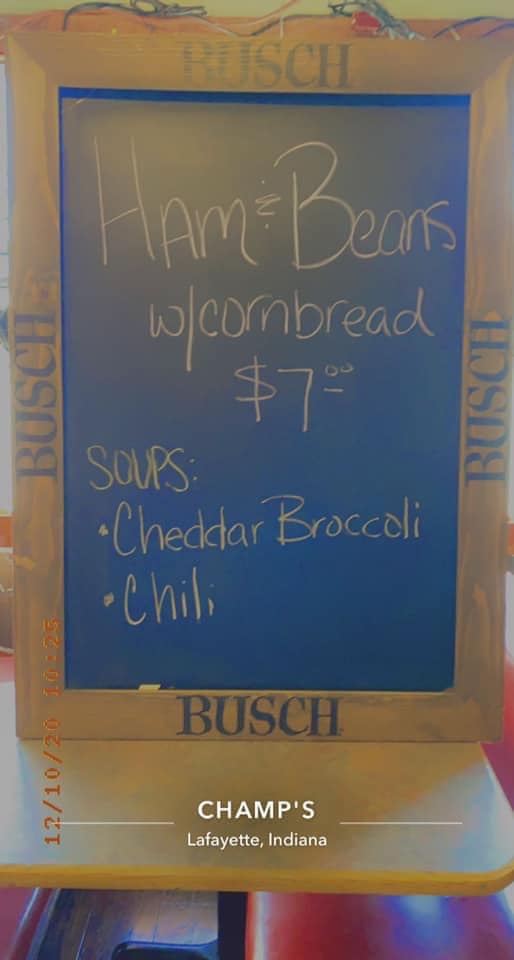 BUSCH
Ham & Beans
w/cornbread
$7.00
BUSCH
BUSCH
SOUPS:
• Cheddar Broccoli
• Chili
BUSCH
12/10/20 10:25
CHAMP'S
Lafayette, Indiana